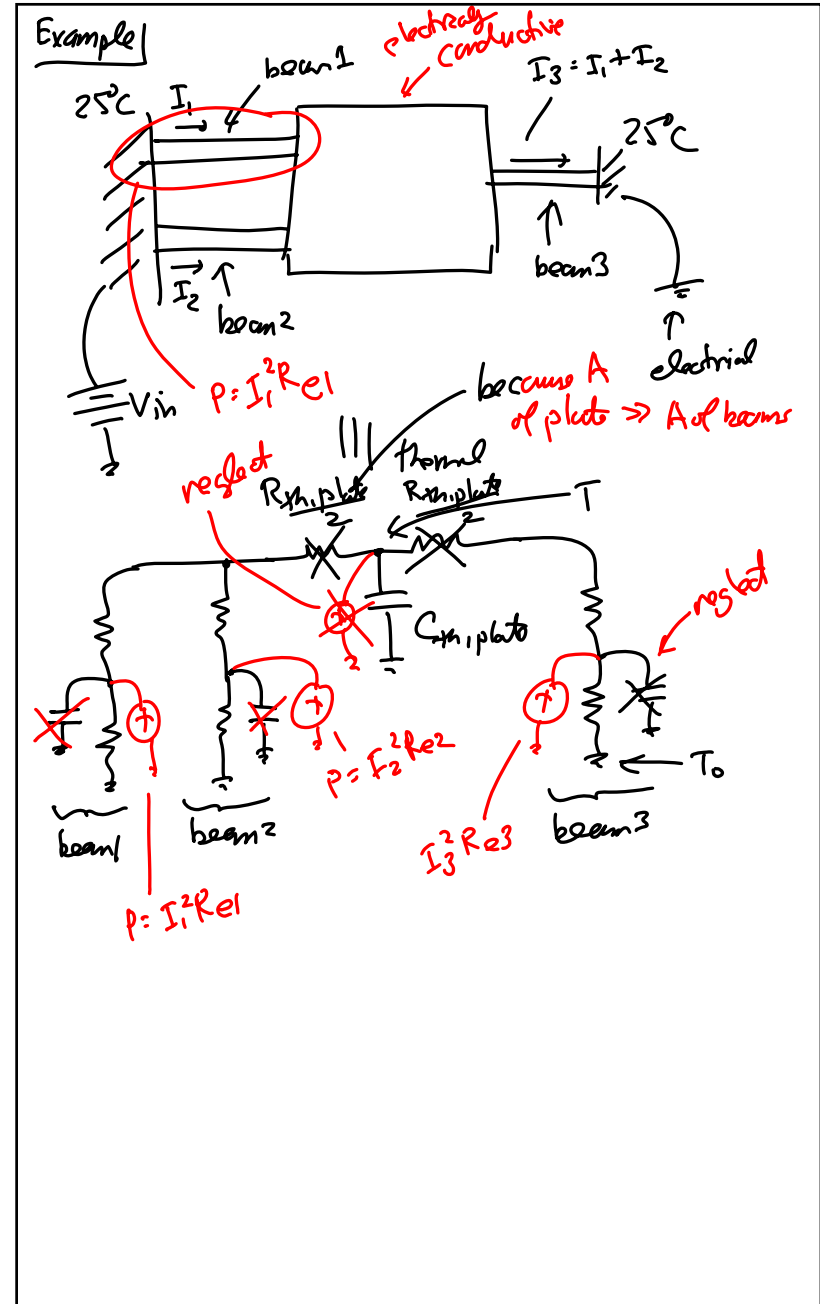 Example
electrically
conductive
beam1
I₃ = I₁ + I₂
25°C
I₁
25°C
beam3
I₂
beam2
electrial
Vin
P = I₁²Re1
because A
of plate >> A of beams
|||
thermal
neglect
Rth,plate
2
Rth,plate
2
T
neglect
Cth,plate
P = I₂²Re2
T₀
beam1
beam2
beam3
I₃²Re3
P = I₁²Re1